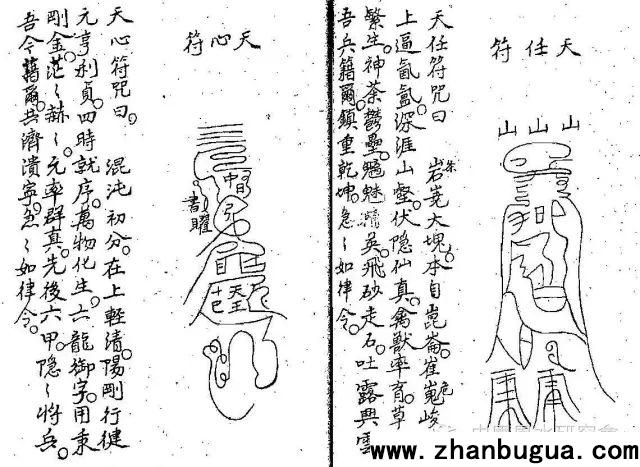 天任符
山山山
天任符咒曰 岩嶤大塊。本自崑崙。崔嵬峻
上逼氤氳。深涯山壑。伏隐仙真。禽獸率育。草
繁生。神荼鬱壘。魑魅精英。飛砂走石。吐露興雲
吾兵籍爾。鎮重乾坤。急〻如律令。
天心符
中
書曜
自
天王
十巳
天心符咒曰。 混沌初分。在上輕清。陽剛行健
元亨利貞。四時就序。萬物化生。六龍御字。用東
剛金。茫〻赫〻。元率群真。先後六甲。隐〻將兵。
吾令藉爾。共濟潰寧。急〻如律令。
www.zhanbugua.com